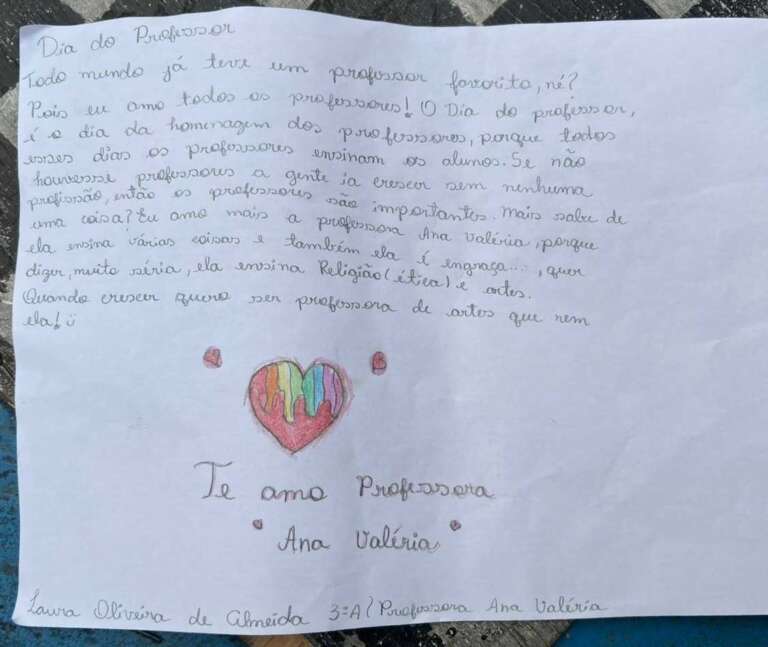 Dia do Professor
Todo mundo já teve um professor favorito, né?
Pois eu amo todos os professores! O Dia do professor,
é o dia da homenagem dos professores, porque todos
esses dias os professores ensinam os alunos. Se não
houvesse professores a gente ia crescer sem nenhuma
profissão, então os professores são importantes. Mais sabe de
uma coisa? Eu amo mais a professora Ana Valéria, porque
ela ensina várias coisas e também ela é engraça..., quer
dizer, muito séria, ela ensina Religião (ética) e artes.
Quando crescer quero ser professora de artes que nem
ela! ü
Te amo Professora
Ana Valéria
Laura Oliveira de Almeida 3ºA Professora Ana Valéria